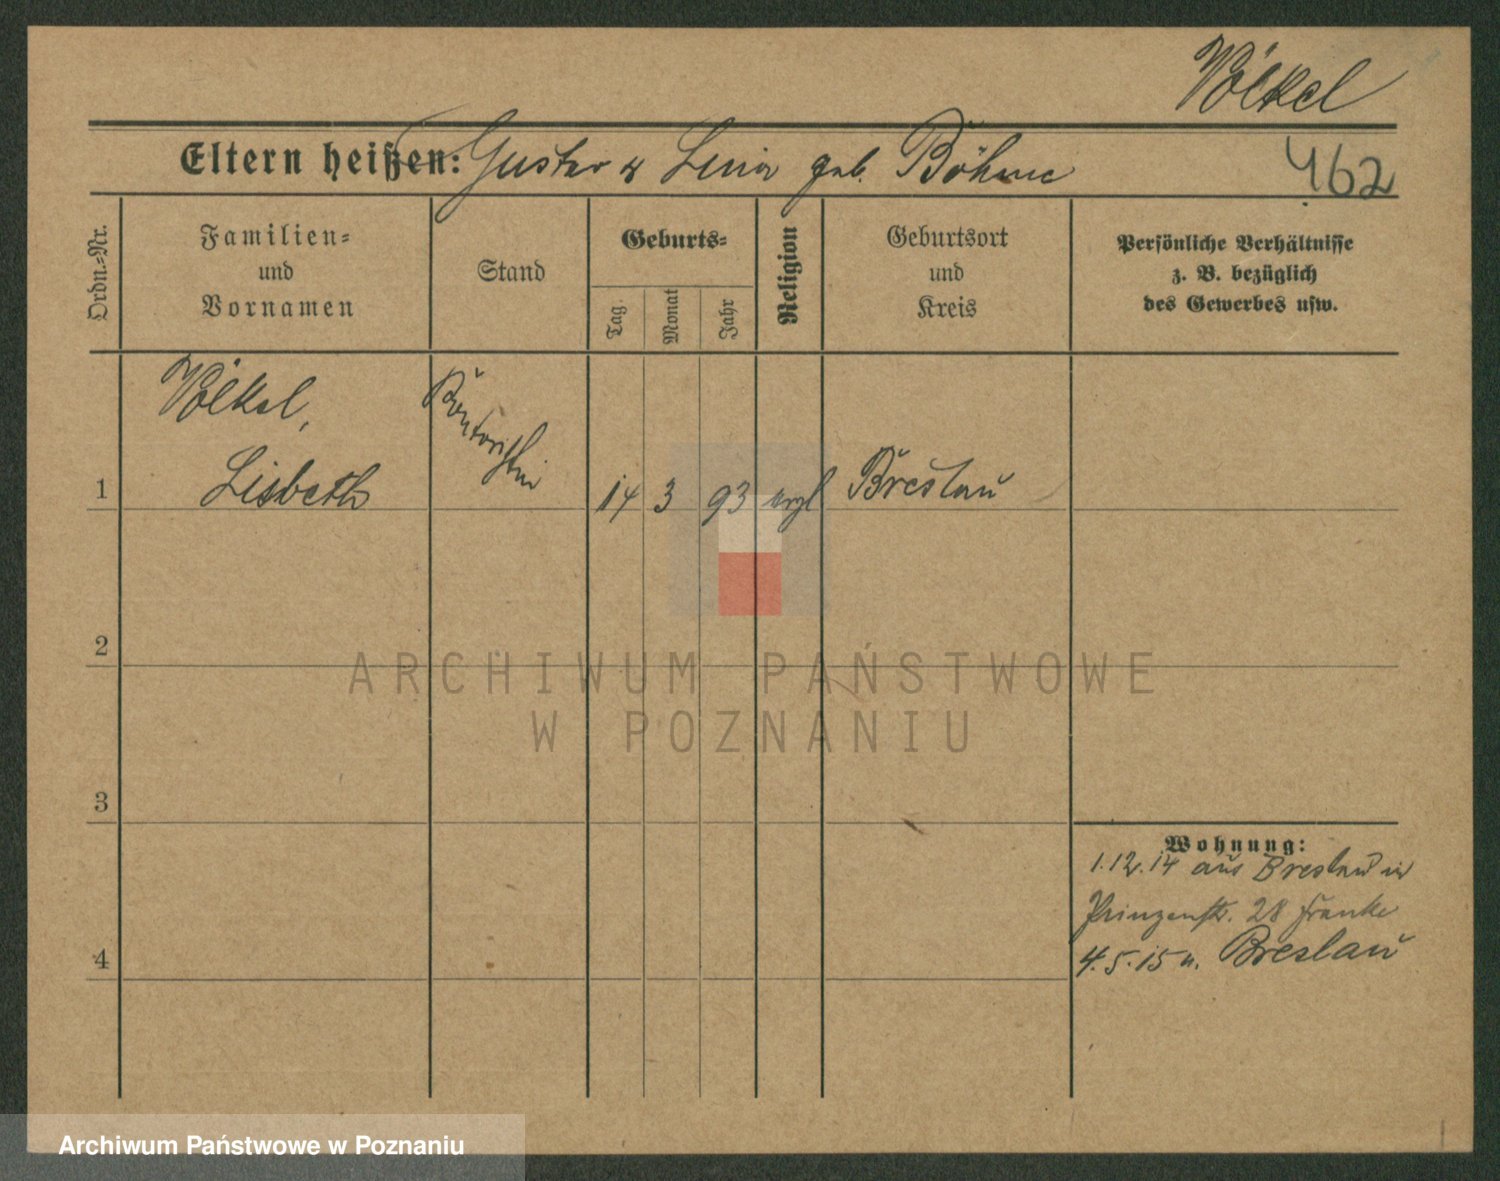 Völkel
Eltern heißen: Gustav u Lina geb. Böhme
462
Ordn.=Nr.
Familien=
und
Vornamen
Stand
Geburts=
Tag.
Monat
Jahr
Religion
Geburtsort
und
Kreis
Persönliche Verhältnisse
z. B. bezüglich
des Gewerbes usw.
1
Völkel,
Lisbeth
Kontoristin
14
3
93
evgl
Breslau
2
3
4
Wohnung:
1.12.14 aus Breslau in
Prinzenstr. 28 Franke
4.5.15 n. Breslau
ARCHIWUM PAŃSTWOWE
W POZNANIU
Archiwum Państwowe w Poznaniu